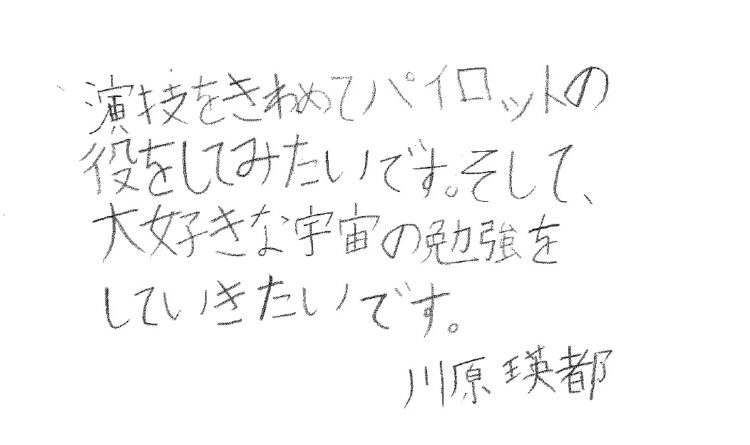 演技をきわめてパイロットの
役をしてみたいです。そして、
大好きな宇宙の勉強を
していきたいです。
川原瑛都